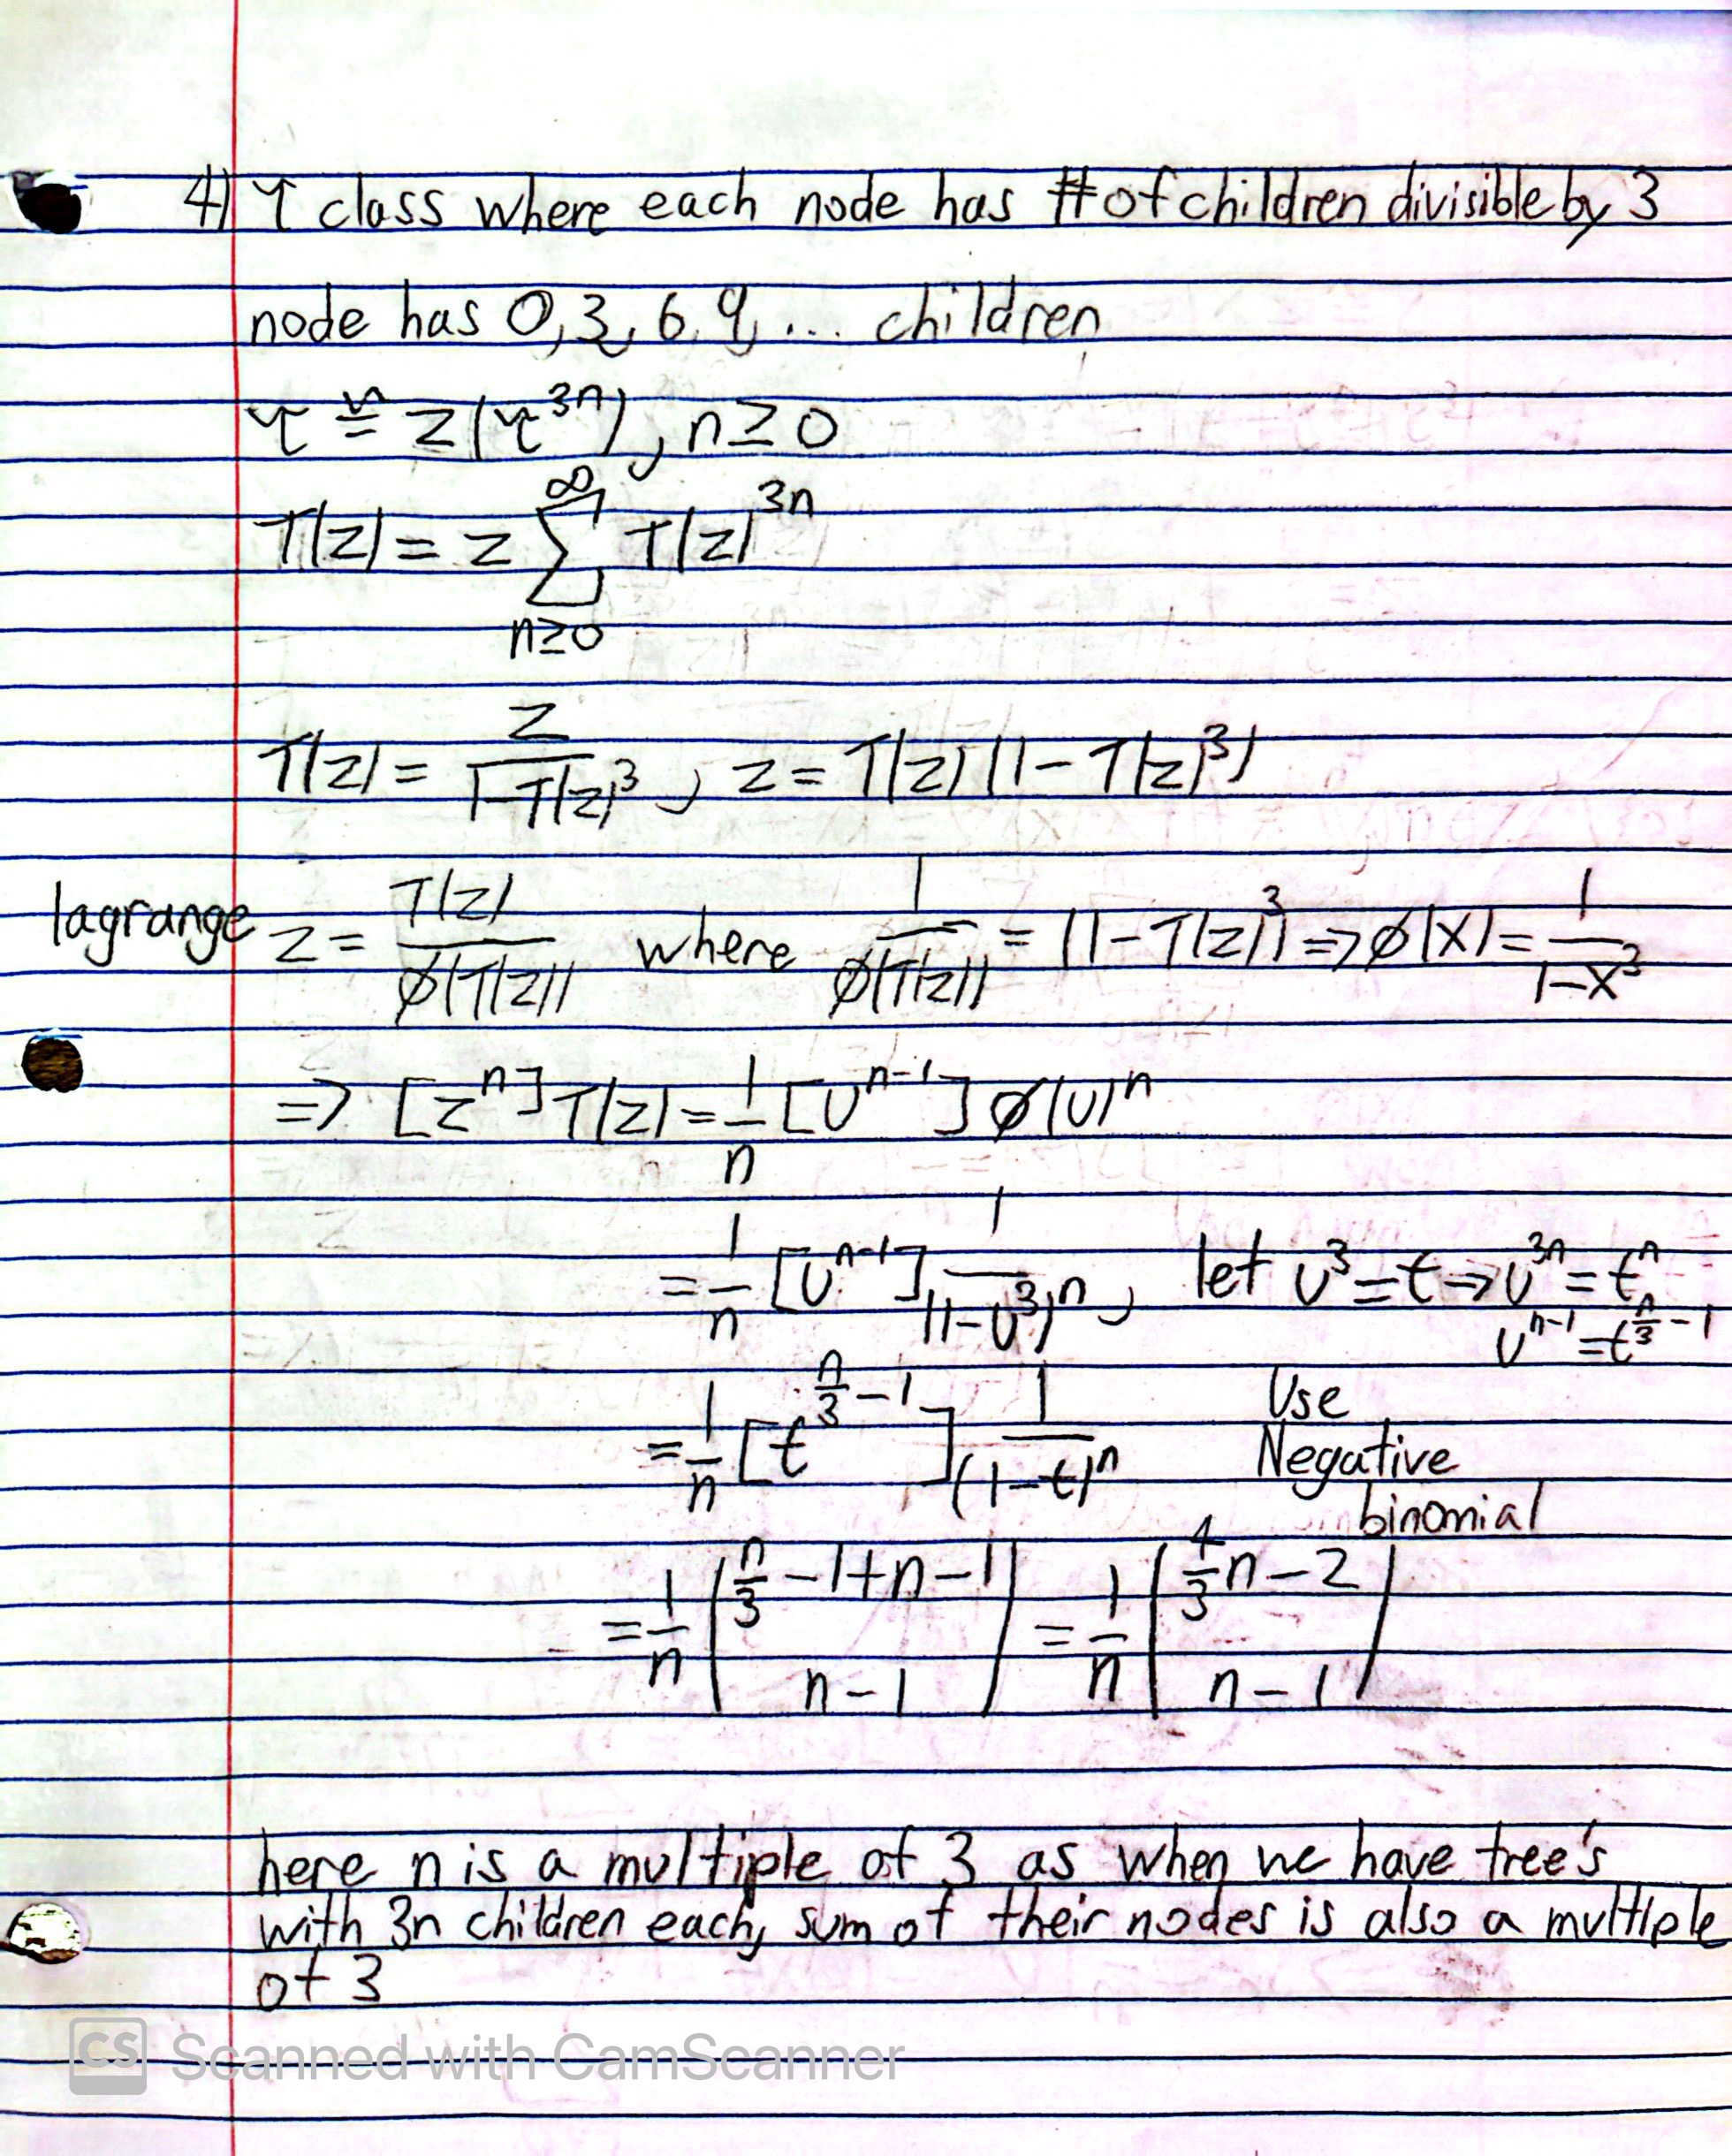 4) τ class where each node has # of children divisible by 3
node has 0, 3, 6, 9, ... children
τ ≅ z(τ^{3n}), n ≥ 0
T(z) = z ∑_{n≥0}^{∞} T(z)^{3n}
T(z) = z / (1-T(z)^3), z = T(z)(1 - T(z)^3)
lagrange z = T(z) / ϕ(T(z)) where 1 / ϕ(T(z)) = (1 - T(z)^3) => ϕ(x) = 1 / (1-x^3)
=> [z^n] T(z) = 1/n [u^{n-1}] ϕ(u)^n
= 1/n [u^{n-1}] 1 / (1-u^3)^n, let u^3 = t => u^{3n} = t^n
u^{n-1} = t^{n/3 - 1}
= 1/n [t^{n/3 - 1}] 1 / (1-t)^n Use
Negative
binomial
= 1/n (n/3 - 1 + n - 1 \choose n-1) = 1/n (4/3 n - 2 \choose n-1)
here n is a multiple of 3 as when we have tree's
with 3n children each, sum of their nodes is also a multiple
of 3
CS Scanned with CamScanner